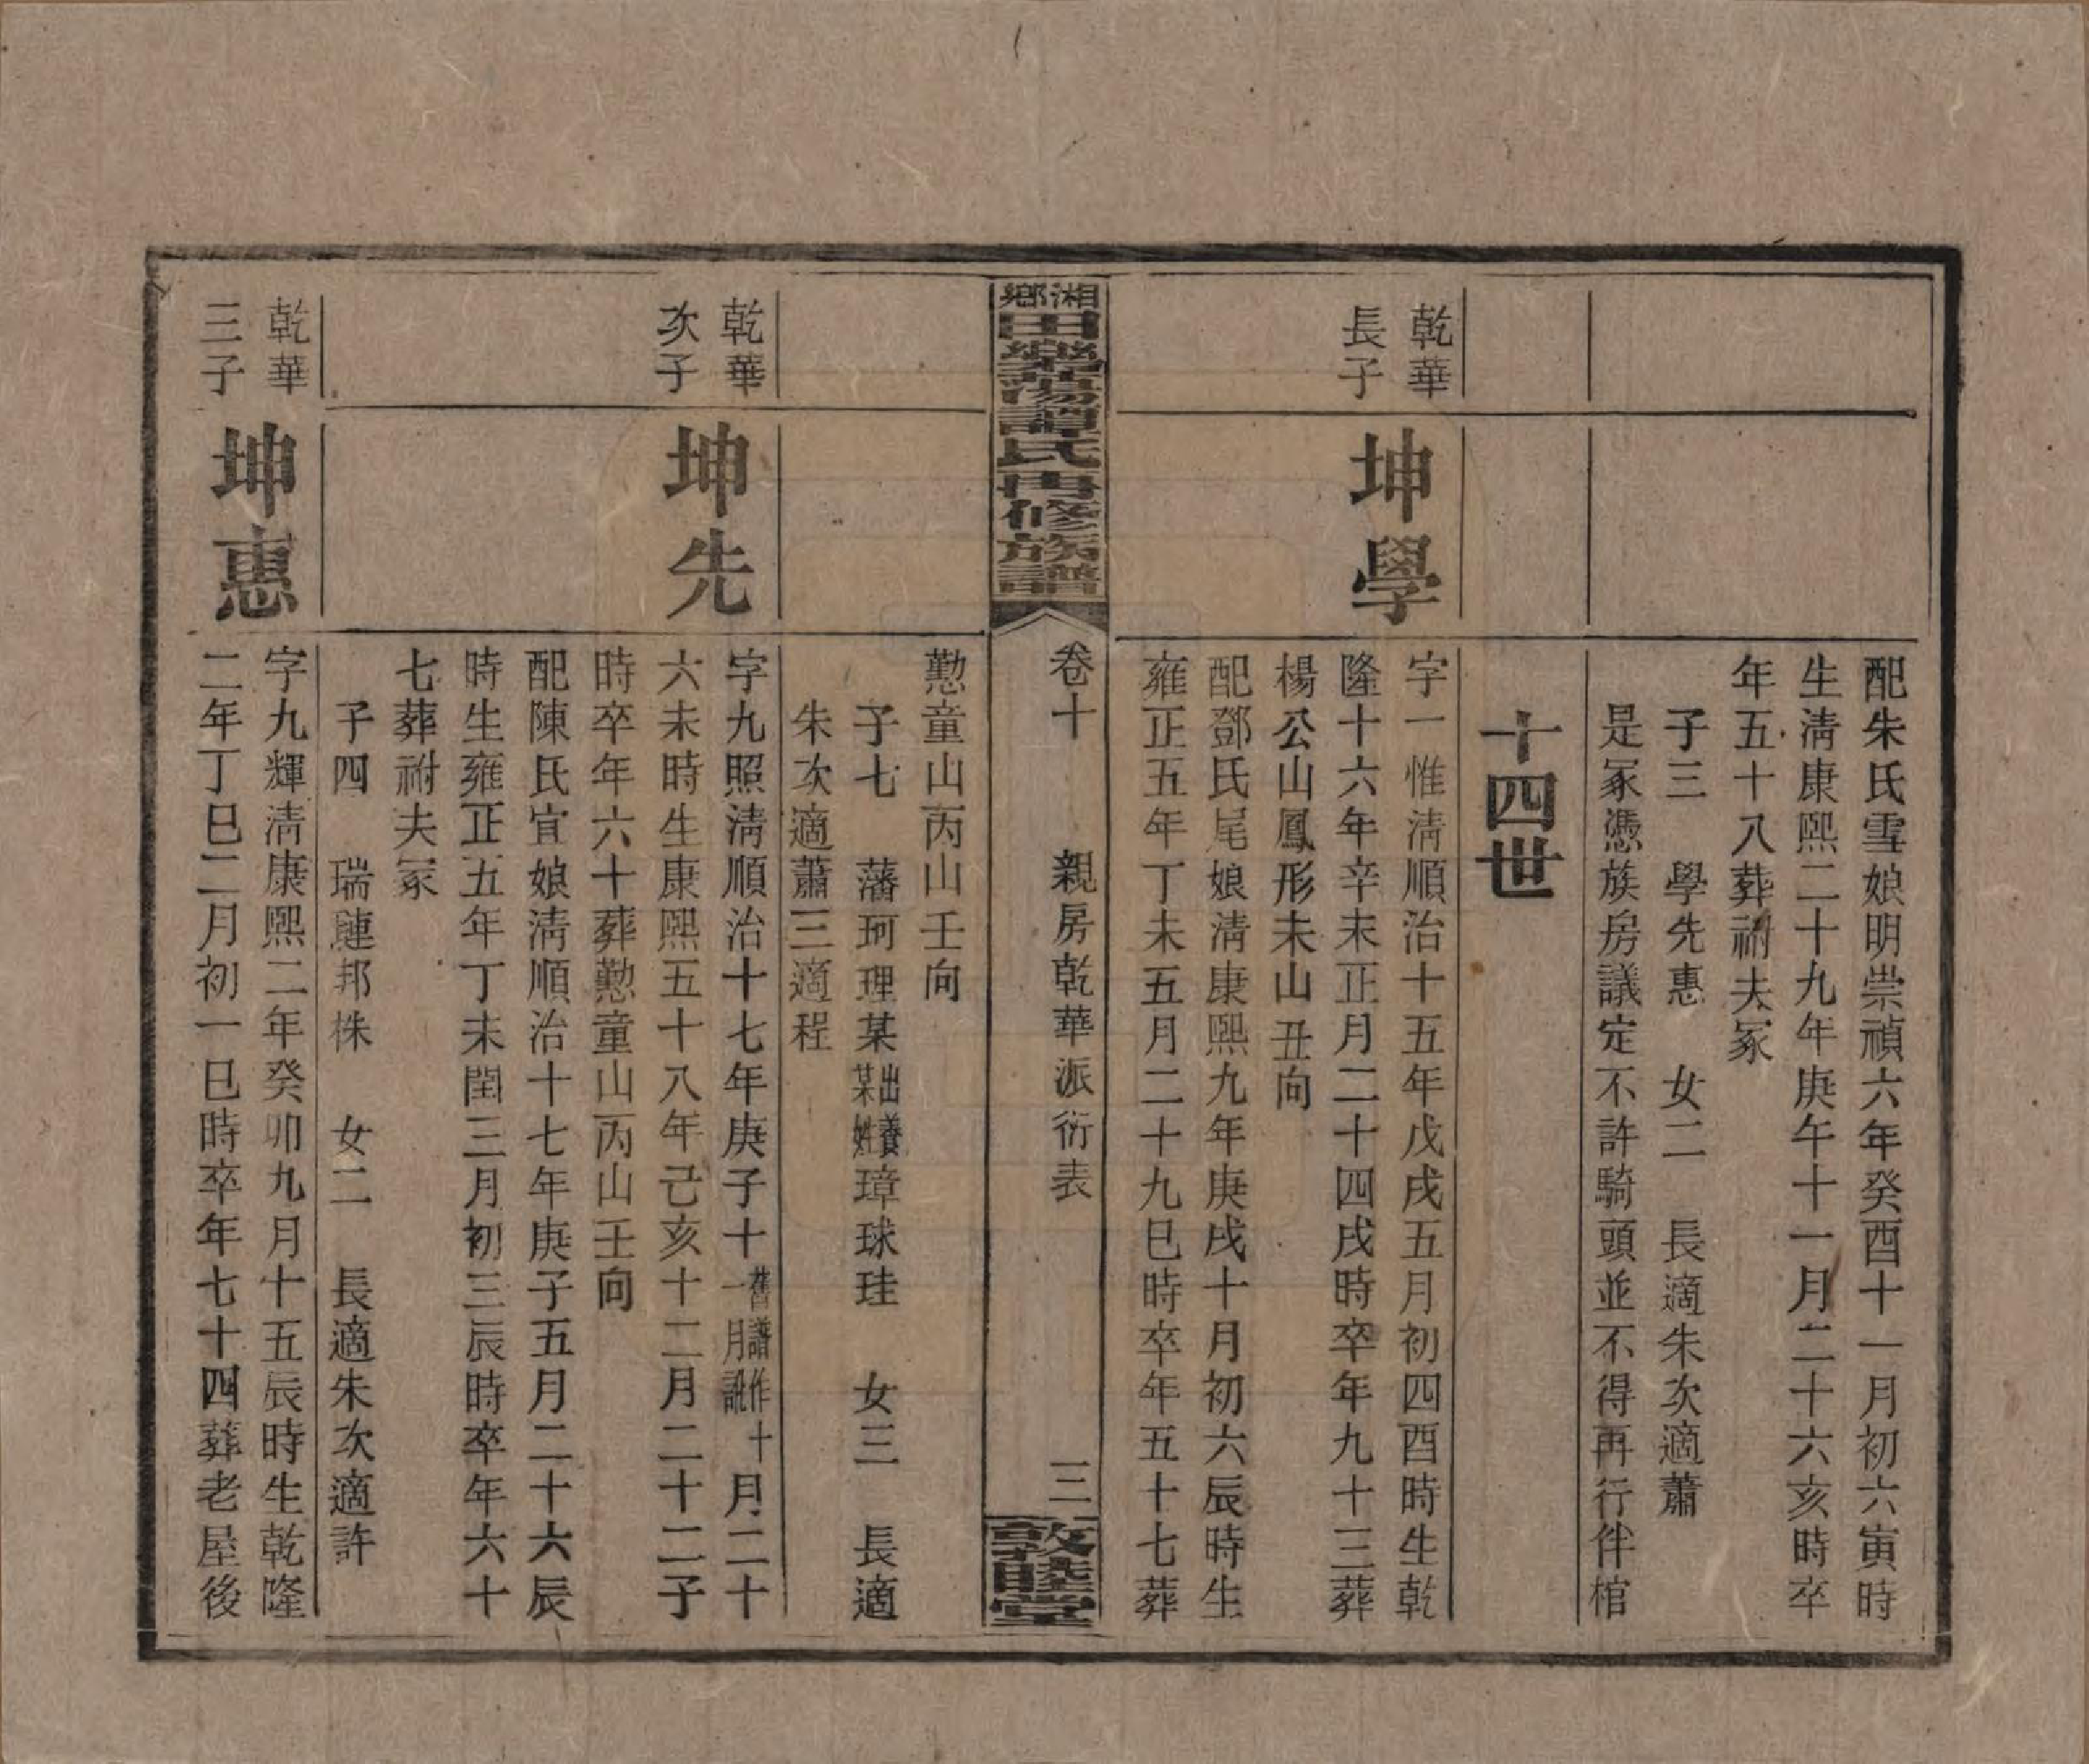 配朱氏雪娘明崇禎六年癸酉十一月初六寅時
生淸康熙二十九年庚午十一月二十六亥時卒
年五十八葬祔夫冢
子三　學先惠　女二　長適朱次適蕭
是冢憑族房議定不許騎頭並不得再行伴棺
十四世
乾華
長子
坤學
字一惟淸順治十五年戊戌五月初四酉時生乾
隆十六年辛未正月二十四戌時卒年九十三葬
楊公山鳳形未山丑向
配鄧氏尾娘淸康熙九年庚戌十月初六辰時生
雍正五年丁未五月二十九巳時卒年五十七葬
湘鄉田樂譚氏再修族譜
卷十　親房乾華派衍表　三
敦睦堂
懃童山丙山壬向
子七　藩珂理某出養某姓璋球珪　女三　長適
朱次適蕭三適程
乾華
次子
坤先
字九照淸順治十七年庚子十舊譜作十一月訛月二十
六未時生康熙五十八年己亥十二月二十二子
時卒年六十葬懃童山丙山壬向
配陳氏宜娘淸順治十七年庚子五月二十六辰
時生雍正五年丁未閏三月初三辰時卒年六十
七葬祔夫冢
子四　瑞璉邦株　女二　長適朱次適許
乾華
三子
坤惠
字九輝淸康熙二年癸卯九月十五辰時生乾隆
二年丁巳二月初一巳時卒年七十四葬老屋後